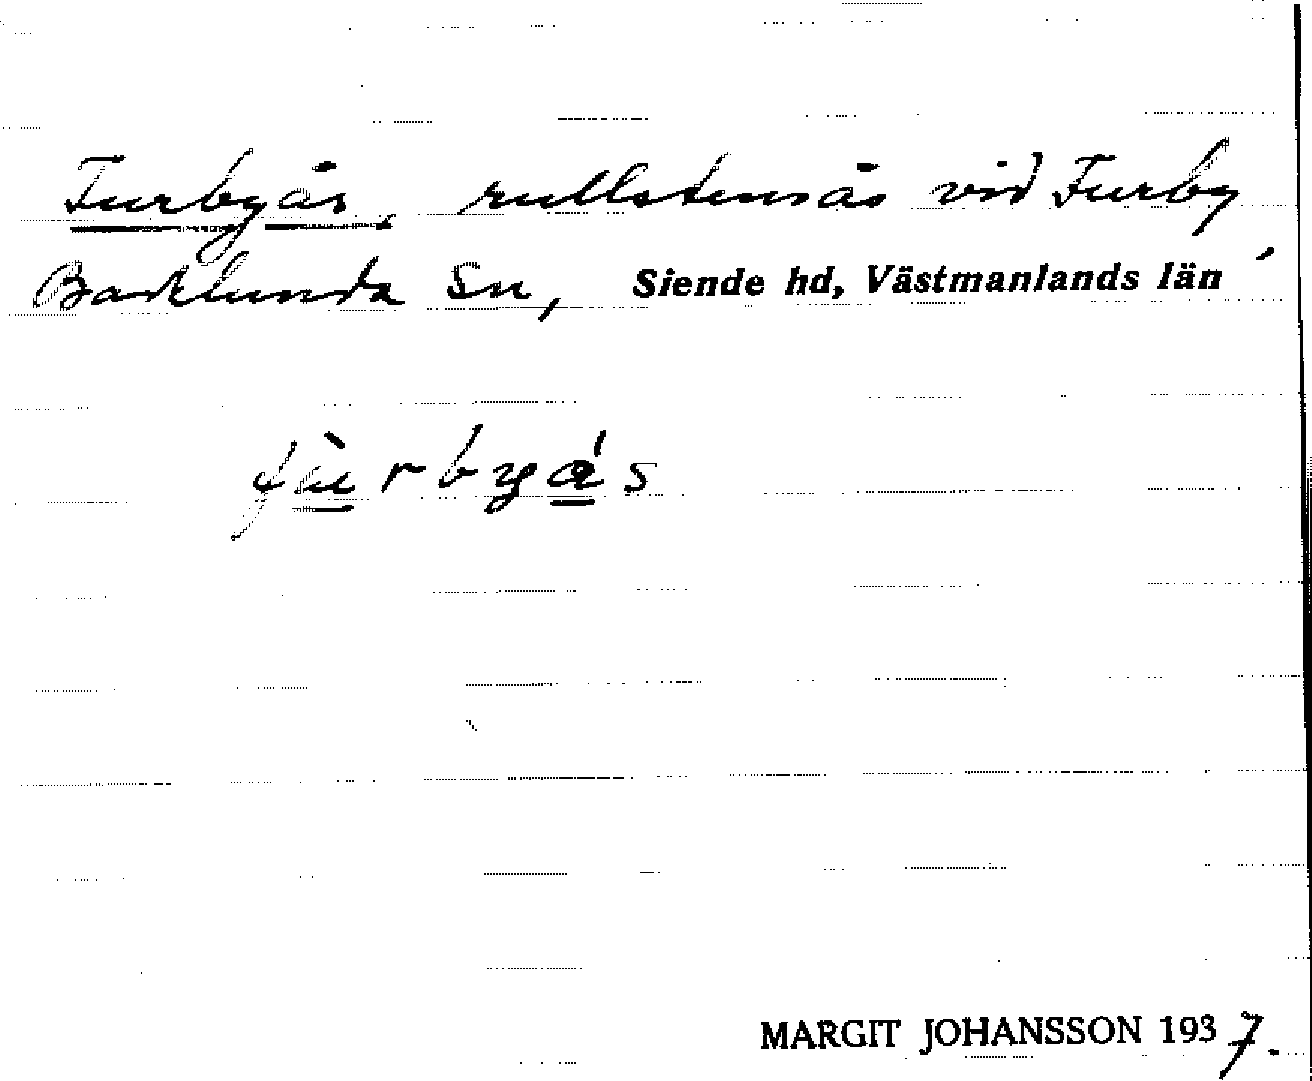 Furbyås, rullstensås vid Furby,
Badelunda Sn, Siende hd, Västmanlands län
fùrbyás
MARGIT JOHANSSON 1937.